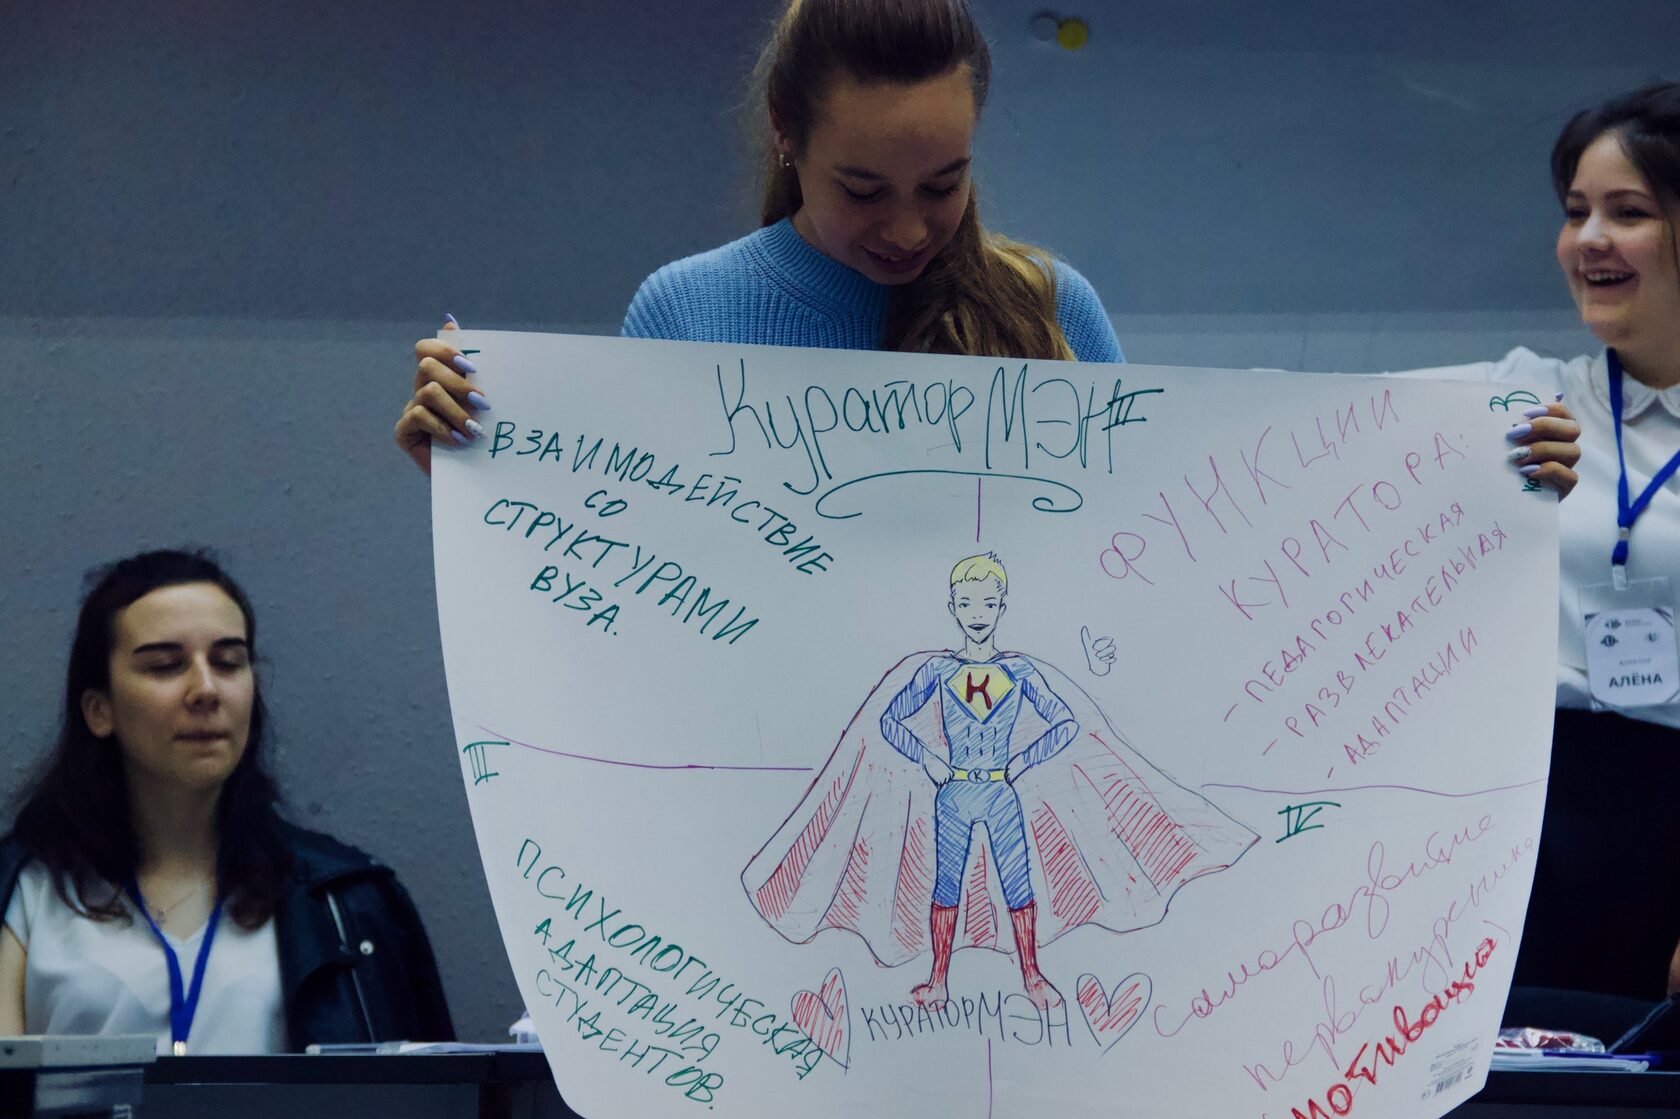 Куратор МЭН
ВЗАИМОДЕЙСТВИЕ
СО
СТРУКТУРАМИ
ВУЗА.
III
ФУНКЦИИ
КУРАТОРА:
- ПЕДАГОГИЧЕСКАЯ
- РАЗВЛЕКАТЕЛЬНАЯ
- АДАПТАЦИИ
К
К
II
ПСИХОЛОГИЧЕСКАЯ
АДАПТАЦИЯ
СТУДЕНТОВ.
IV
саморазвитие
первокурсника
мотивация)
КУРАТОРМЭН
КУРАТОР
АЛЁНА